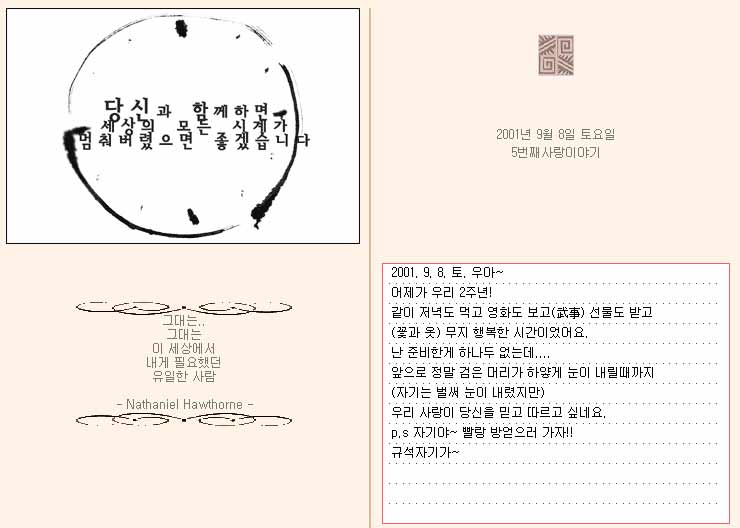 당신과 함께하면
세상의 모든 시계가
멈춰버렸으면 좋겠습니다
그대는..
그대는
이 세상에서
내게 필요했던
유일한 사람
- Nathaniel Hawthorne -
2001년 9월 8일 토요일
5번째사랑이야기
2001. 9. 8. 토. 우아~
어제가 우리 2주년!
같이 저녁도 먹고 영화도 보고(武事) 선물도 받고
(꽃과 옷) 무지 행복한 시간이었어요.
난 준비한게 하나두 없는데....
앞으로 정말 검은 머리가 하얗게 눈이 내릴때까지
(자기는 벌써 눈이 내렸지만)
우리 사랑이 당신을 믿고 따르고 싶네요.
p.s 자기야~ 빨랑 방얻으러 가자!!
규석자기가~